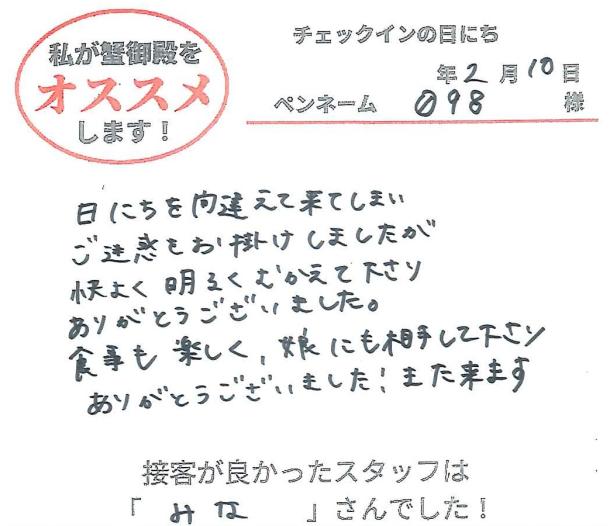 私が蟹御殿を
オススメ
します！
チェックインの日にち
年2月10日
ペンネーム 098 様
日にちを間違えて来てしまい
ご迷惑をお掛けしましたが
快よく明るくむかえて下さり
ありがとうございました。
食事も楽しく、娘にも相手して下さり
ありがとうございました！また来ます
接客が良かったスタッフは
「みな」さんでした！